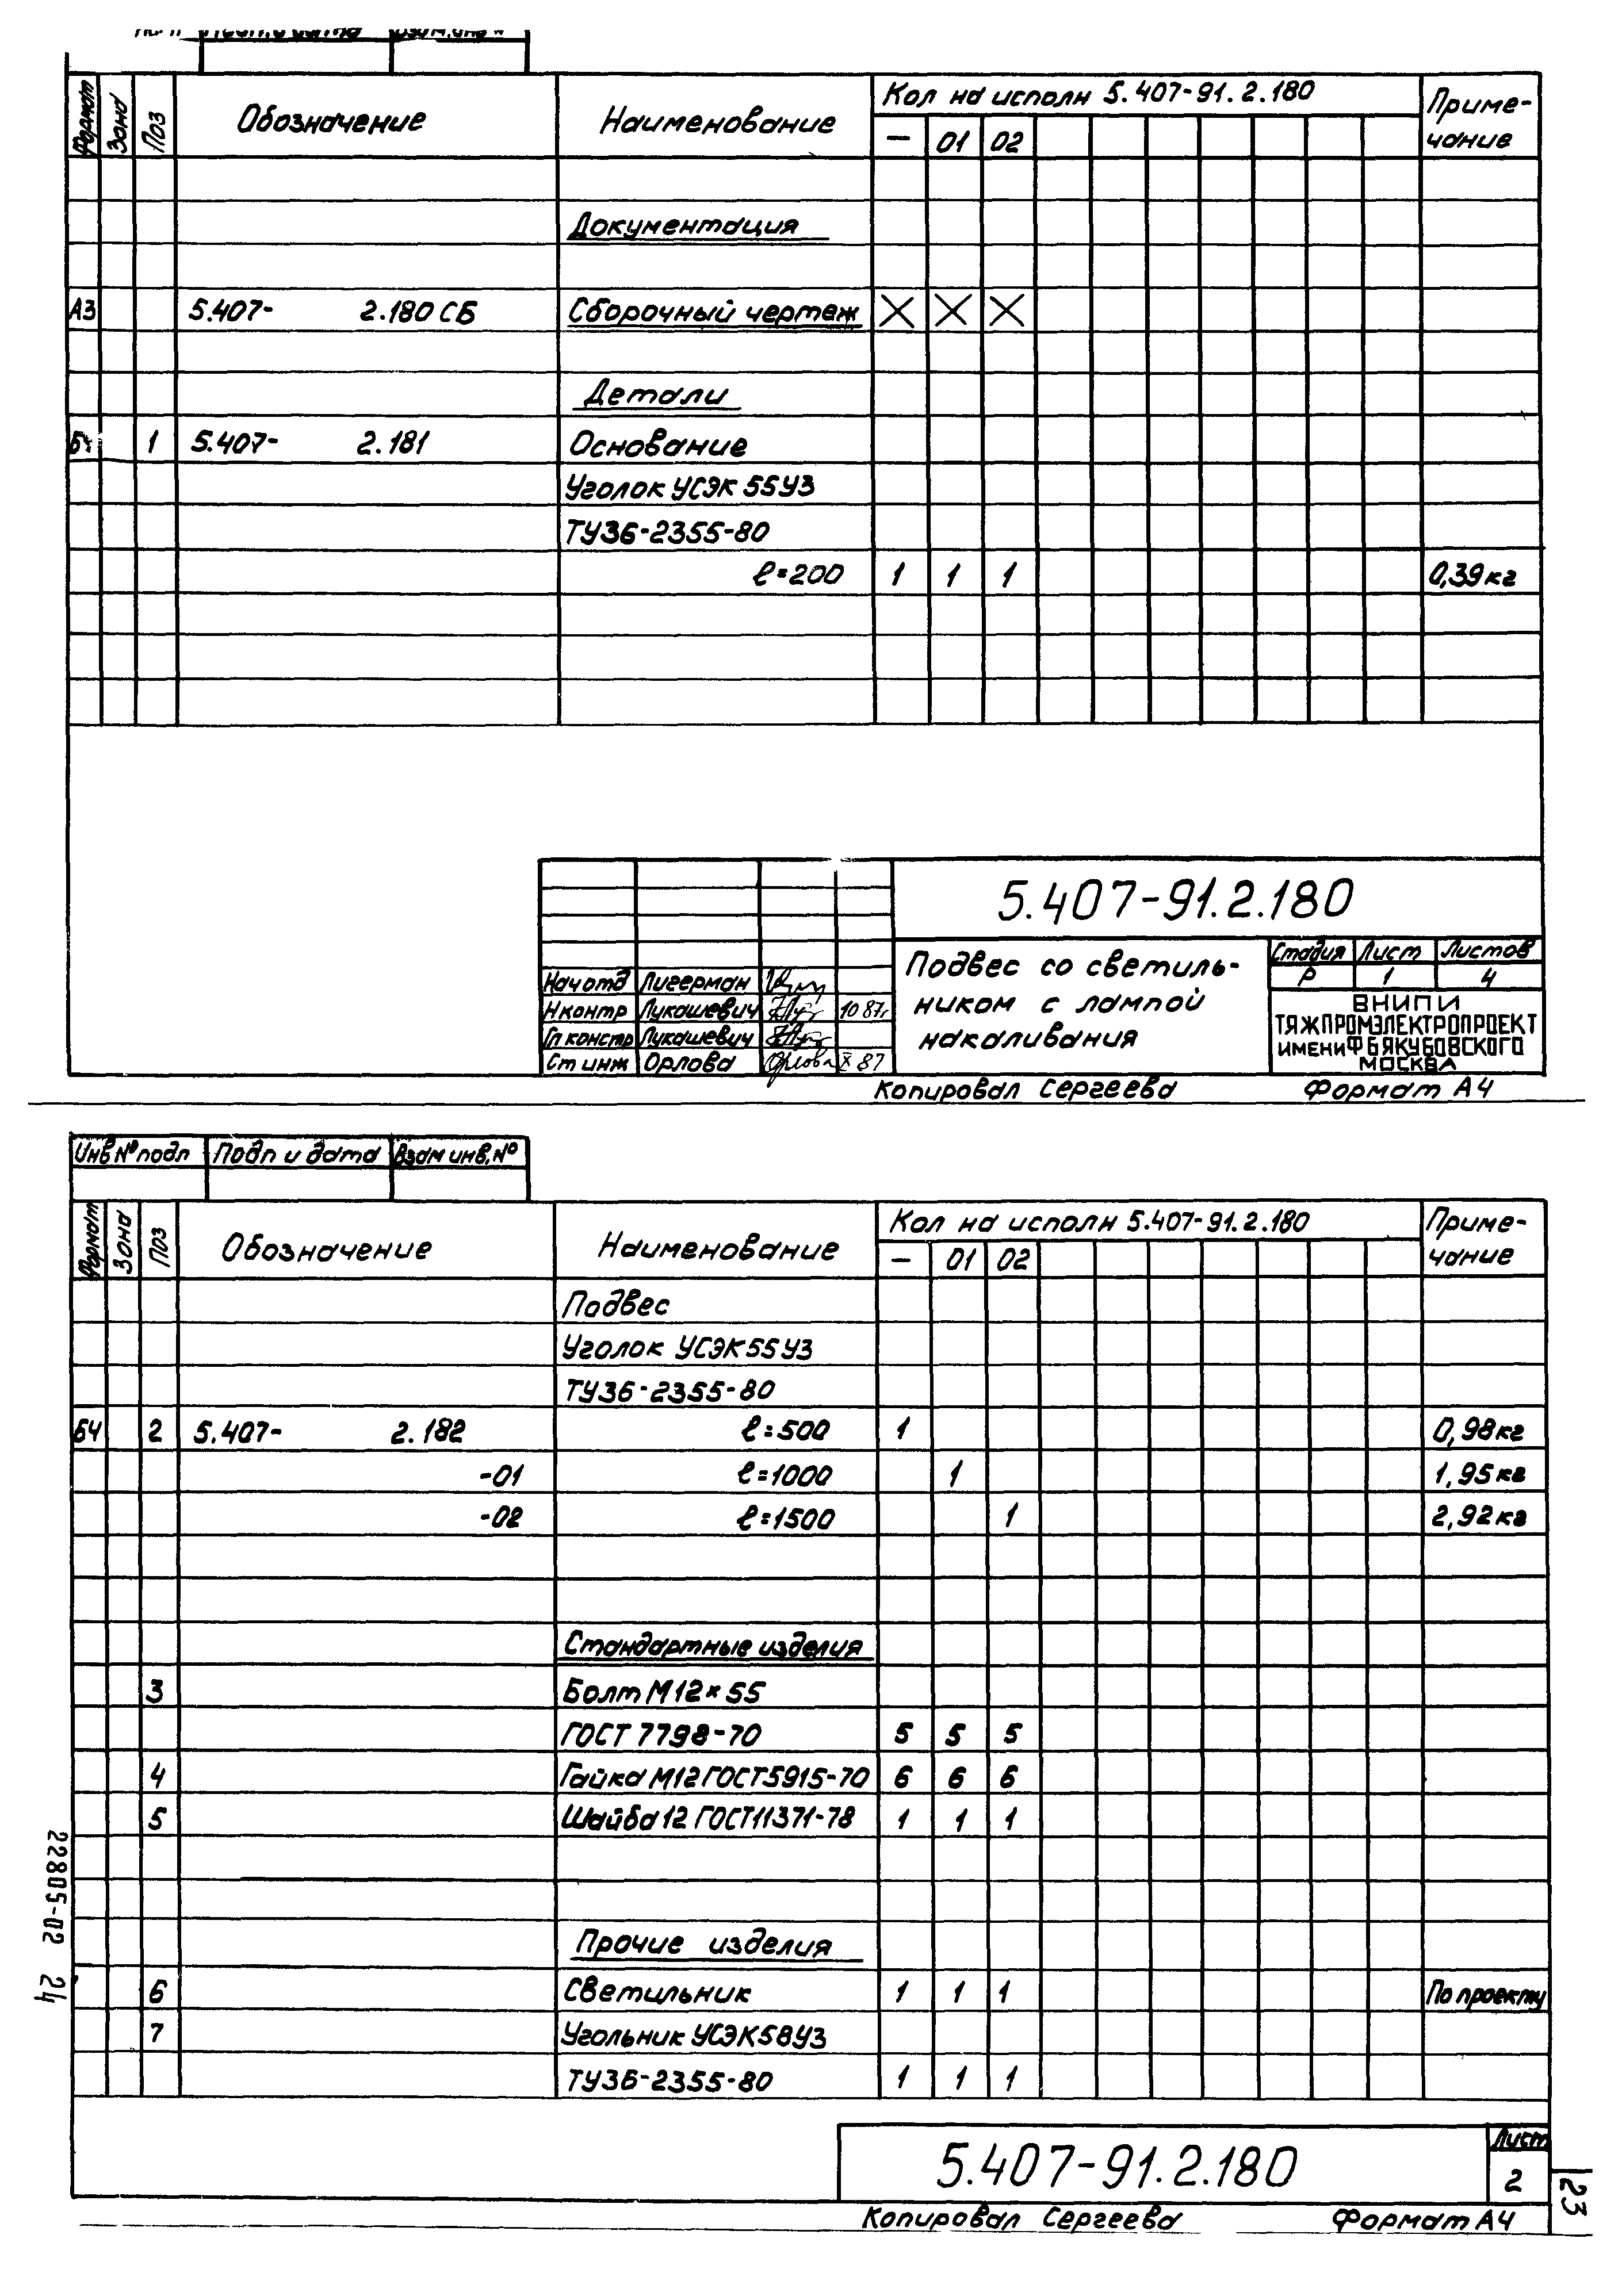 Формат Зона Поз Обозначение Наименование Кол на исполн 5.407-91.2.180 Приме-
чание
— 01 02
Документация
А3 5.407- 2.180 СБ Сборочный чертеж X X X
Детали
БЧ 1 5.407- 2.181 Основание
Уголок УСЭК 55У3
ТУ36-2355-80
ℓ=200 1 1 1 0,39кг
5.407-91.2.180
Подвес со светиль-
ником с лампой
накаливания
Стадия Лист Листов
Р 1 4
ВНИПИ
ТЯЖПРОМЭЛЕКТРОПРОЕКТ
ИМЕНИ Ф Б ЯКУБОВСКОГО
МОСКВА
Нач отд Лигерман
Н контр Лукашевич 10 87г
Гл констр Лукашевич
Ст инж Орлова Орлова X 87
Копировал Сергеева Формат А4
Инв № подл Подп и дата Взам инв. №
Формат Зона Поз Обозначение Наименование Кол на исполн 5.407-91.2.180 Приме-
чание
— 01 02
Подвес
Уголок УСЭК 55У3
ТУ36-2355-80
БЧ 2 5.407- 2.182 ℓ=500 1 0,98кг
-01 ℓ=1000 1 1,95кг
-02 ℓ=1500 1 2,92кг
Стандартные изделия
3 Болт М12×55
ГОСТ 7798-70 5 5 5
4 Гайка М12 ГОСТ 5915-70 6 6 6
5 Шайба 12 ГОСТ 11371-78 1 1 1
Прочие изделия
6 Светильник 1 1 1 По проекту
7 Угольник УСЭК58У3
ТУ36-2355-80 1 1 1
22805-02 24
5.407-91.2.180
Лист
2
23
Копировал Сергеева Формат А4